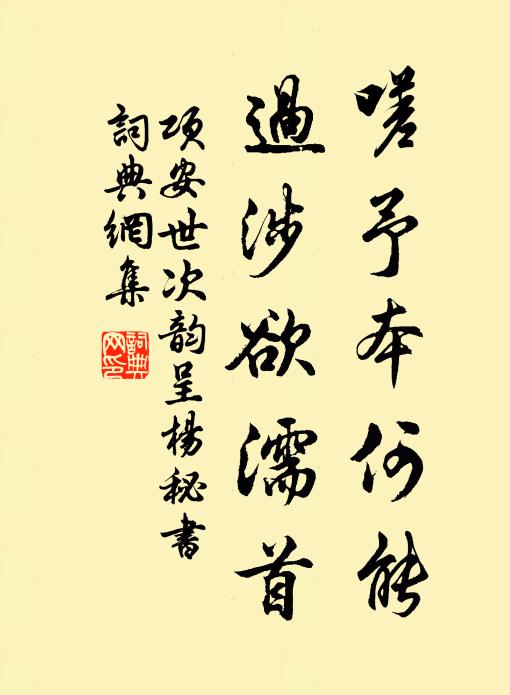 嗟予本何能
過涉欲濡首
項安世次韵呈楊秘書
詞典網集
詞典
网印